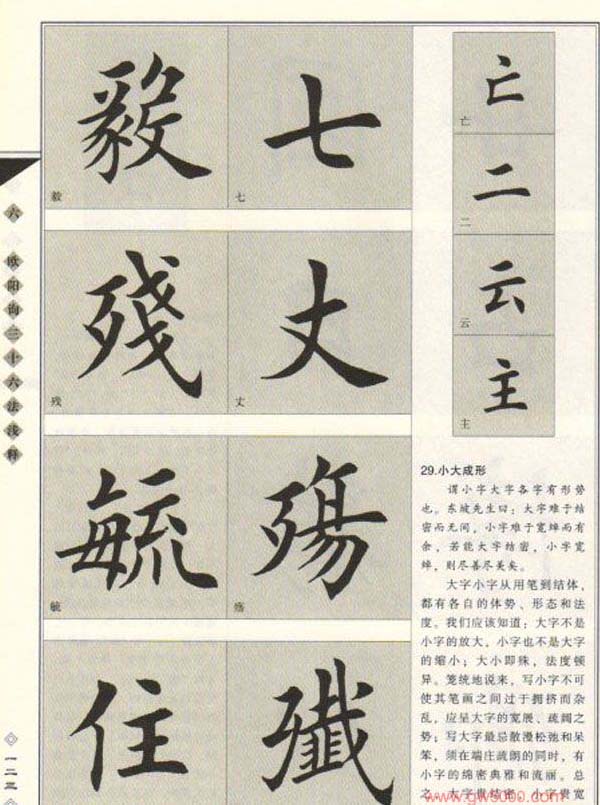 六 欧阳询三十六法浅释
一二三
毅
毅
七
七
殘
残
丈
丈
毓
毓
殤
殇
住
殲
亡
亡
二
二
云
云
主
主
29.小大成形
谓小字大字各字有形势
也。东坡先生曰：大字难于结
密而无间，小字难于宽绰而有
余，若能大字结密，小字宽
绰，则尽善尽美矣。
大字小字从用笔到结体，
都有各自的体势、形态和法
度。我们应该知道：大字不是
小字的放大，小字也不是大字
的缩小；大小即殊，法度顿
异。笼统地说来，写小字不可
使其笔画之间过于拥挤而杂
乱，应呈大字的宽展、疏阔之
势；写大字最忌散漫松弛和呆
笨，须在端庄疏朗的同时，有
小字的绵密典雅和流丽。总
之，大字贵结密，小字贵宽